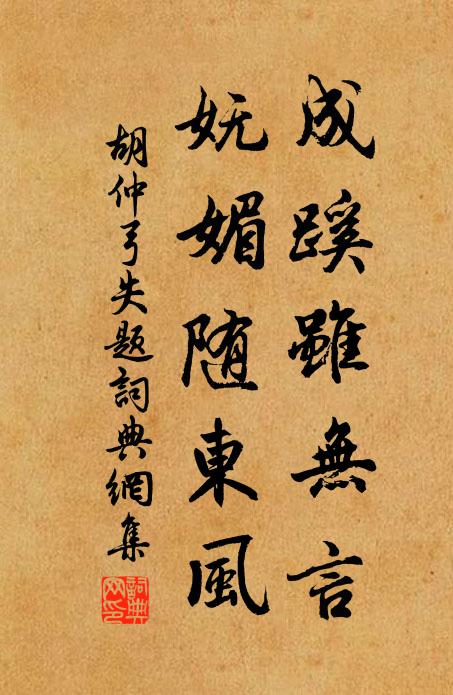 成蹊雖無言
妩媚随東風
胡仲弓失题詞典網集